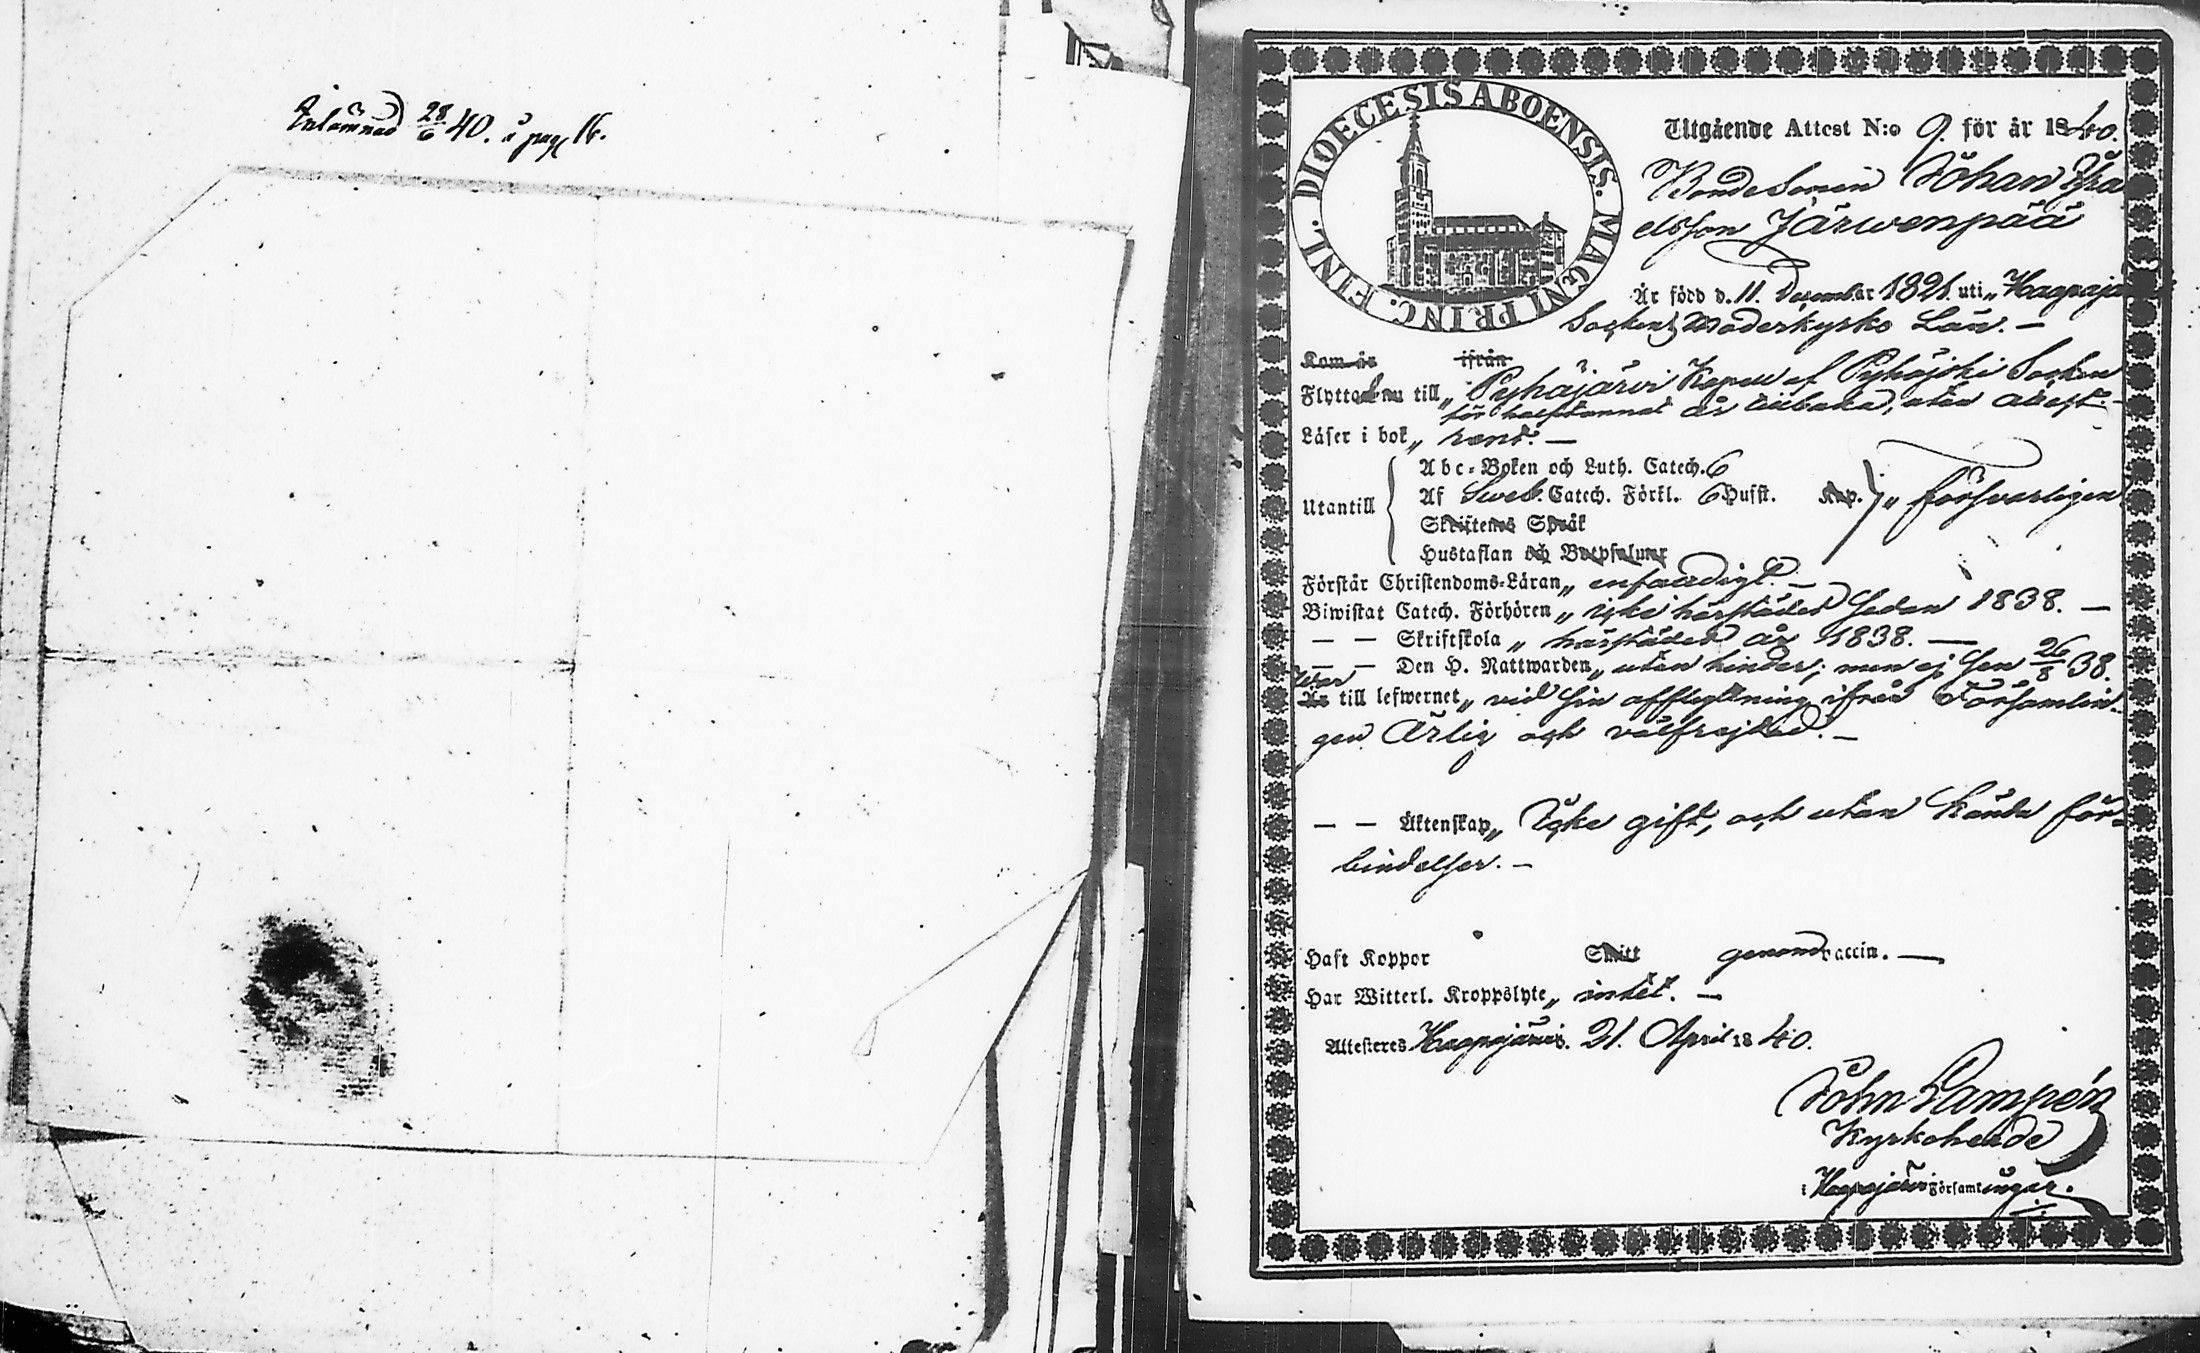 Inlämnad 28/6 40. å pag 16.
DIOECESIS ABOENSIS. MAGNI PRINC. FINL.
Utgående Attest N:o 9. för år 1840.
Bondesonen Johan Isra
elsson Järwenpää
Är född d. 11. December 1821. uti „Haapajärvi
Sockens Moderkyrko Län. —
Kom år ifrån
Flyttade nu till „ Pyhäjärvi Kapell af Pyhäjoki Socken
för halftannat år tillbaka, utan attest. —
Läser i bok „ rent. —
Utantill
Abc-Boken och Luth. Catech. 6
Af Sveb. Catech. Förkl. 6 Hufst. Kap. „ försvarligen
Skriftenes Språk
Hustaflan och Botpsalmer
Förstår Christendoms-Läran „ enfaldigt. —
Biwistat Catech. Förhören „ icke härstädes sedan 1838. —
— — Skriftskola „ härstädes år 1838. —
— — Den H. Nattwarden „ utan hinder; men ej sen 26/8 38.
War
Är till lefwernet „ vid sin afflyttning ifrån Församlin-
gen Ärlig och välfrejdad. —
— — Äktenskap „ Icke gift, och utan kända för-
bindelser. —
Haft Koppor Skitt genom vaccin. —
Har Witterl. Kroppslyte „ intet. —
Attesteres Haapajärvi. 21. April 1840.
John Lampén
Kyrkoherde
i Haapajärvi Församlingar.